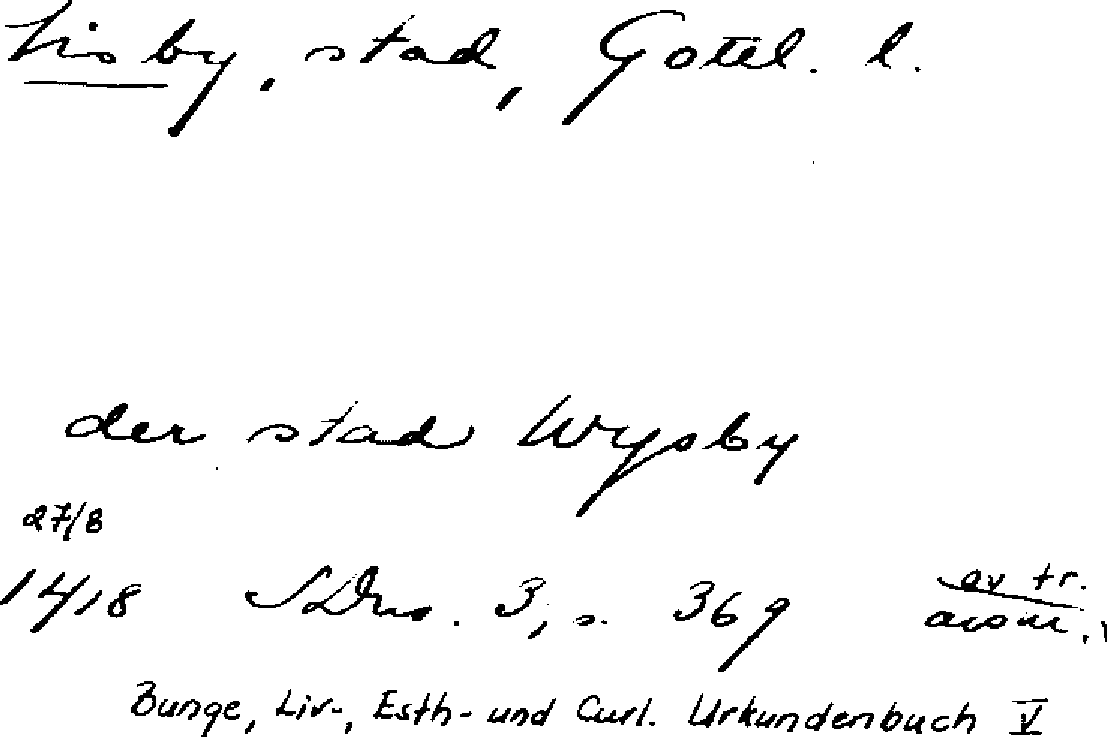 Visby, stad, Gotl. l.
der stad Wysby
27/8
1418 SDns. 3, s. 369
av tr.
avskr.
Bunge, Liv-, Esth- und Curl. Urkundenbuch V